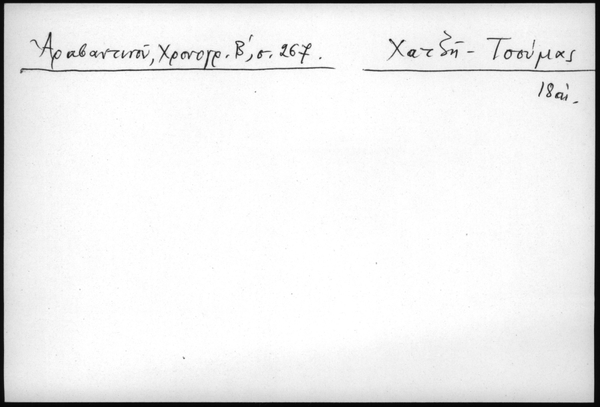 Ἀραβαντινοῦ, Χρονογρ. Β΄, σ. 267. Χατζῆ - Τσούμας
18 αἰ.